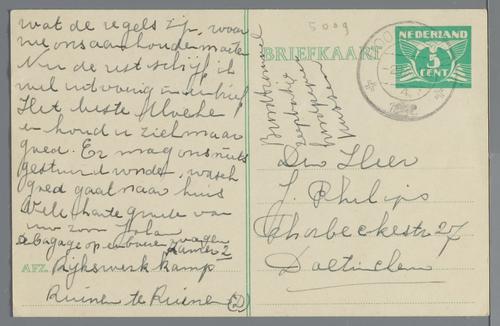 wat de regels zijn, waar
we ons aan houden moeten
Nu de rest schrijf ik
wel uitvoerig in een brief
Het beste Moeke
en houd u zich maar
goed. Er mag ons niets
gestuurd worden, wasch
goed gaat naar huis
Vele harte groete van
uw zoon
Bagage op wagen
Kamer 2
AFZ. Rijkswerkkamp
Ruinen te Ruinen (D)
5009
BRIEFKAART
NEDERLAND
5
CENT
Broodtrommel
zeepdoos
kussen
Den Heer
J. Philips
Thorbeckestr 27
Doetinchem